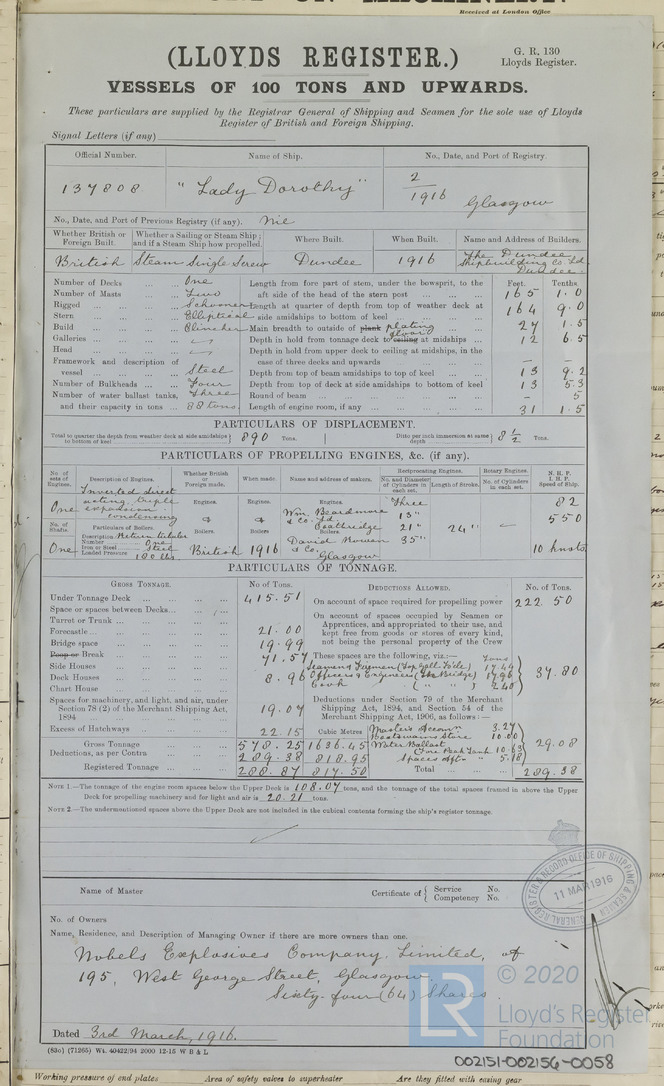 Received at London Office
(LLOYDS REGISTER.)
G. R. 130
Lloyds Register.
VESSELS OF 100 TONS AND UPWARDS.
These particulars are supplied by the Registrar General of Shipping and Seamen for the sole use of Lloyds
Register of British and Foreign Shipping.
Signal Letters (if any)
Official Number. Name of Ship. No., Date, and Port of Registry.
137808 "Lady Dorothy" 2/1916 Glasgow
No., Date, and Port of Previous Registry (if any). Nil
Whether British or Foreign Built. Whether a Sailing or Steam Ship; and if a Steam Ship how propelled. Where Built. When Built. Name and Address of Builders.
British Steam Single Screw Dundee 1916 The Dundee Shipbuilding Co Ld Dundee
Feet. Tenths.
Number of Decks One Length from fore part of stem, under the bowsprit, to the
Number of Masts Two aft side of the head of the stern post 165 1.0
Rigged Schooner Length at quarter of depth from top of weather deck at
Stern Elliptical side amidships to bottom of keel 164 9.0
Build Clincher Main breadth to outside of plank plating 27 1.5
Galleries Depth in hold from tonnage deck to ceiling floor at midships 12 6.5
Head Depth in hold from upper deck to ceiling at midships, in the
Framework and description of case of three decks and upwards – –
vessel Steel Depth from top of beam amidships to top of keel 13 9.2
Number of Bulkheads Four Depth from top of deck at side amidships to bottom of keel 13 5.3
Number of water ballast tanks, Three Round of beam - 5
and their capacity in tons 88 tons Length of engine room, if any 31 1.5
PARTICULARS OF DISPLACEMENT.
Total to quarter the depth from weather deck at side amidships to bottom of keel 890 Tons. Ditto per inch immersion at same depth 8 1/2 Tons.
PARTICULARS OF PROPELLING ENGINES, &c. (if any).
No. of sets of Engines. Description of Engines. Whether British or Foreign made. When made. Name and address of makers. Reciprocating Engines. No. and Diameter of Cylinders in each set. Length of Stroke. Rotary Engines. No. of Cylinders in each set. N.H.P. I.H.P. Speed of Ship.
One Inverted direct acting triple expansion condensing Engines. Engines. Engines. Wm. Beardmore & Co. Ld. Coatbridge Three 13" 21" 35" 24" 82 550
No. of Shafts. Particulars of Boilers. Boilers Boilers Boilers
One Description Return tubular Number One Iron or Steel Steel Loaded Pressure 180 lbs. British 1916 David Rowan & Co. Glasgow 10 knots
PARTICULARS OF TONNAGE.
GROSS TONNAGE. No of Tons. DEDUCTIONS ALLOWED. No. of Tons.
Under Tonnage Deck 415.51 On account of space required for propelling power 222 50
Space or spaces between Decks On account of spaces occupied by Seamen or
Turret or Trunk Apprentices, and appropriated to their use, and
Forecastle 21.00 kept free from goods or stores of every kind,
Bridge space 19.99 not being the personal property of the Crew
Poop or Break 71.57 These spaces are the following, viz:— Tons
Side Houses Seamen & Firemen (Top Gall. Fo'cle) 17.44
Deck Houses 8.96 Officers & Engineers (Bridge) 17.96 37.80
Chart House Cook ( " " ) 2.40
Spaces for machinery, and light, and air, under Section 78 (2) of the Merchant Shipping Act, 1894 19.07 Deductions under Section 79 of the Merchant Shipping Act, 1894, and Section 54 of the Merchant Shipping Act, 1906, as follows:—
Excess of Hatchways 22.15 Cubic Metres Master's Accom 3.27
Boatswains Store 10.00
Gross Tonnage 578.25 1636.45 Water Ballast 29.08
Deductions, as per Contra 289.38 818.95 Fore Peak Tank 10.63
Spaces Aft 5.18
Registered Tonnage 288.87 817.50 Total 289.38
NOTE 1.—The tonnage of the engine room spaces below the Upper Deck is 108.07 tons, and the tonnage of the total spaces framed in above the Upper
Deck for propelling machinery and for light and air is 20.21 tons.
NOTE 2.—The undermentioned spaces above the Upper Deck are not included in the cubical contents forming the ship's register tonnage.
GENERAL REGISTER & RECORD OFFICE OF SHIPPING & SEAMEN
11 MAR 1916
Name of Master Certificate of { Service No. Competency No.
No. of Owners
Name, Residence, and Description of Managing Owner if there are more owners than one.
Nobels Explosives Company Limited, of
195, West George Street, Glasgow.
Sixty four (64) Shares.
LR
© 2020
Lloyd's Register
Foundation
Dated 3rd March, 1916.
(83o) (71265) Wt. 40422/94 2000 12-15 W B & L
002151-002156-0058
Working pressure of end plates Area of safety valves to superheater Are they fitted with easing gear